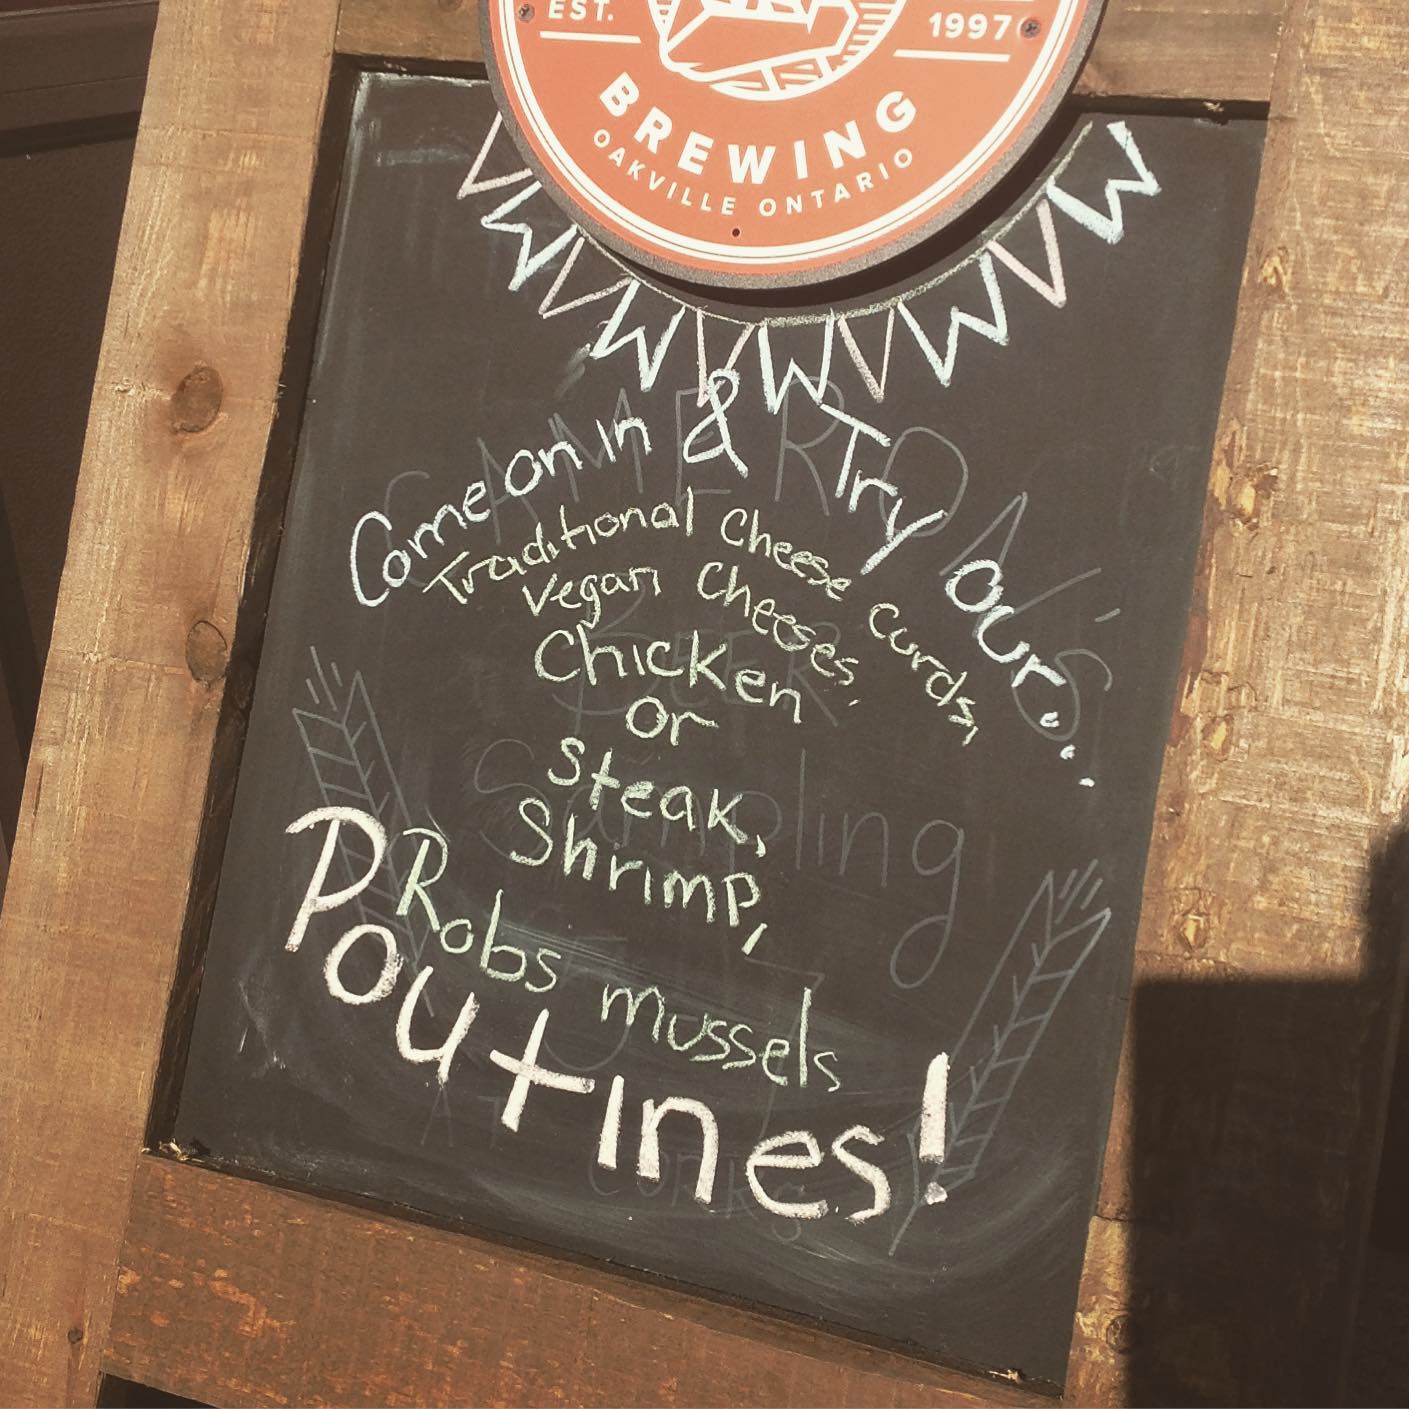 EST. 1997
BREWING
OAKVILLE ONTARIO
Come on in & Try our...
Traditional Cheese Curds,
Vegan Cheeses,
Chicken
or
Steak,
Shrimp,
Robs mussels
Poutines!
CAMERON'S
BEER
Sampling
AT